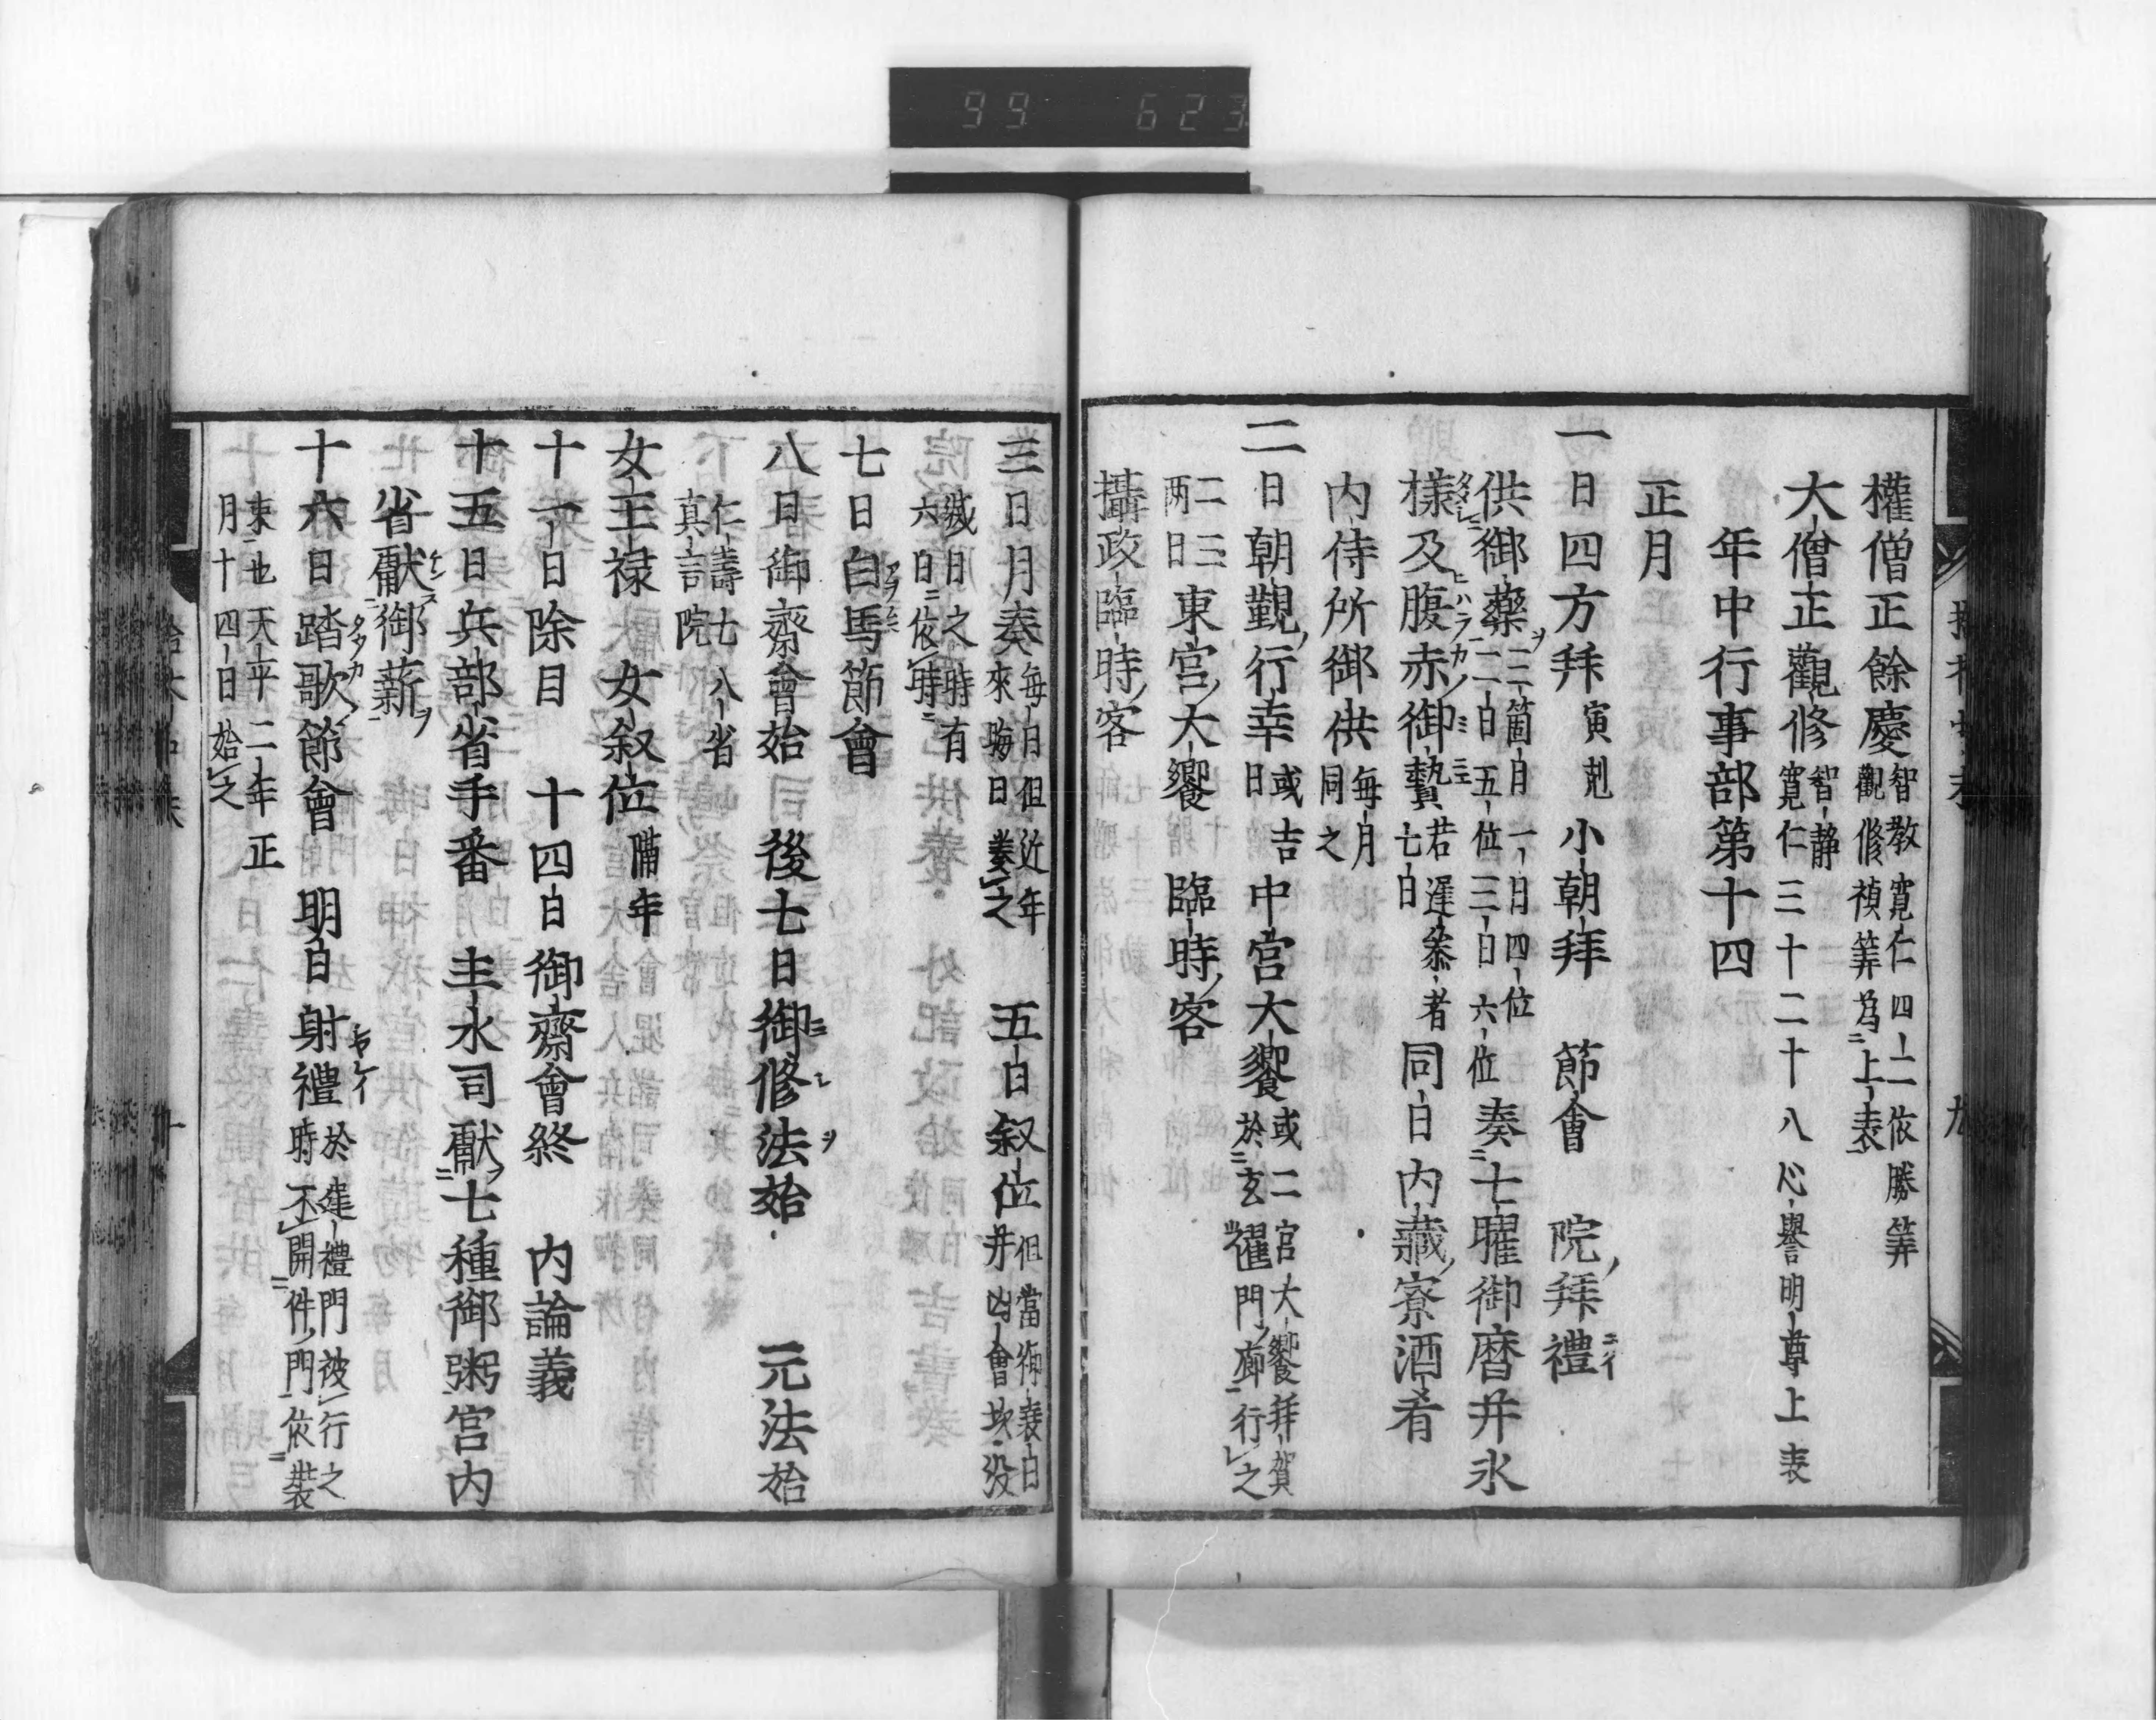 權僧正餘慶智教寛仁四二依勝筭
觀修禎筭爲上表
大僧正觀修智静
寛仁三十二十八心譽明尊上表
年中行事部第十四
正月
一日四方拜寅剋 小朝拜 節會 院拜禮
供御藥三箇月一日四位
二日五位三日六位奏七曜御暦并氷
樣及腹赤御贄若遲參者
七日 同日内藏寮酒肴
内侍所御供毎月
同之
二日朝覲行幸或吉
日 中宮大饗或二宮大饗拜賀
於玄耀門廊行之
二三
两日東宮大饗 臨時客
攝政臨時客
三日月奏毎日但近年
來晦日奏之 五日叙位但當御衰日
并凶會坎没
滅日之時有
六日依時
七日白馬節會
八日御齋會始 後七日御修法始 元法始
仁壽七八省
真言院
女王禄 女叙位隔年
十一日除目 十四日御齋會終 内論義
十五日兵部省手番 主水司獻七種御粥宮内
省獻御薪
十六日踏歌節會 明日射禮於建禮門被行之
時不開件門依裝
束也天平二年正
月十四日始之
99 623
九
十